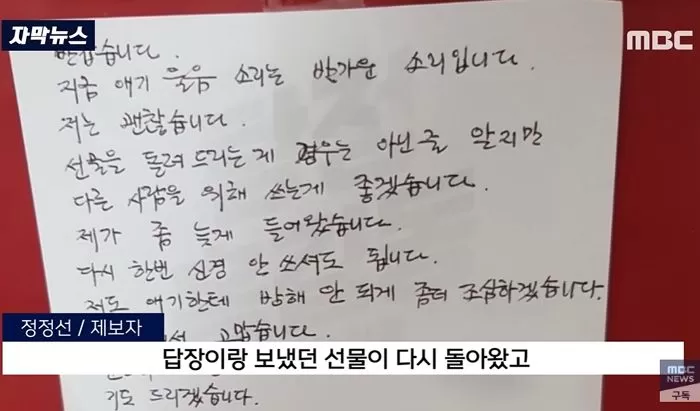 자막뉴스
MBC
반갑습니다.
지금 애기 울음 소리는 반가운 소리입니다.
저는 괜찮습니다.
선물을 돌려 드리는게 경우는 아닌줄 알지만
다른 사람을 위해 쓰는게 좋겠습니다.
제가 좀 늦게 들어왔습니다.
다시 한번 신경 안 쓰셔도 됩니다.
저도 애기한테 방해 안 되게 좀더 조심하겠습니다.
고맙습니다.
기도 드리겠습니다.
정정선 / 제보자
답장이랑 보냈던 선물이 다시 돌아왔고
MBC
NEWS
구독